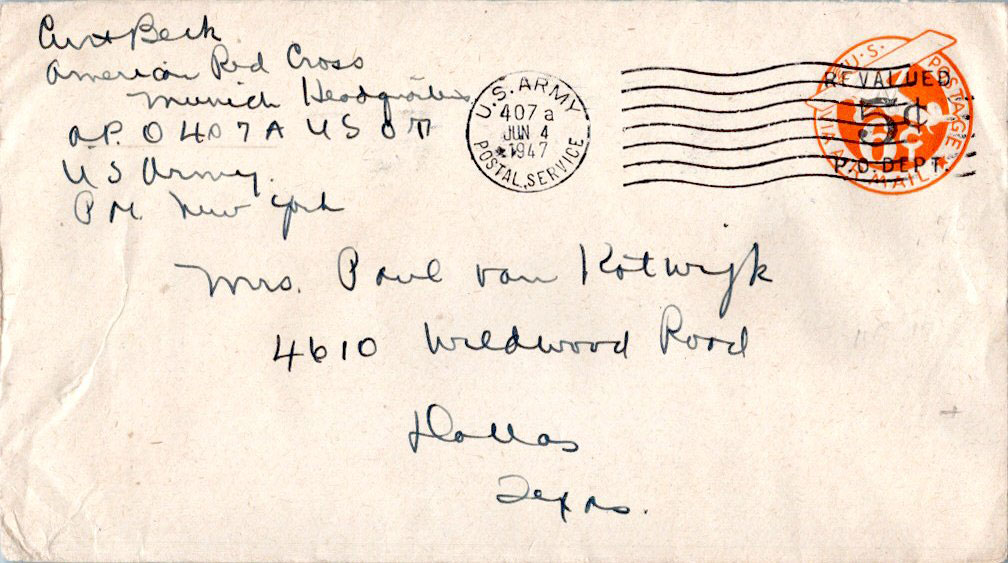 Curt Beck
American Red Cross
Munich Headquarters
A.P.O 407 A US
US Army.
P M. New York
U.S. ARMY
407a
JUN 4
1947
POSTAL SERVICE
U.S. POSTAGE
REVALUED
5¢
6¢
P.O. DEPT.
VIA AIR MAIL
Mrs. Paul van Kotwijk
4610 Wildwood Road
Dallas
Texas.